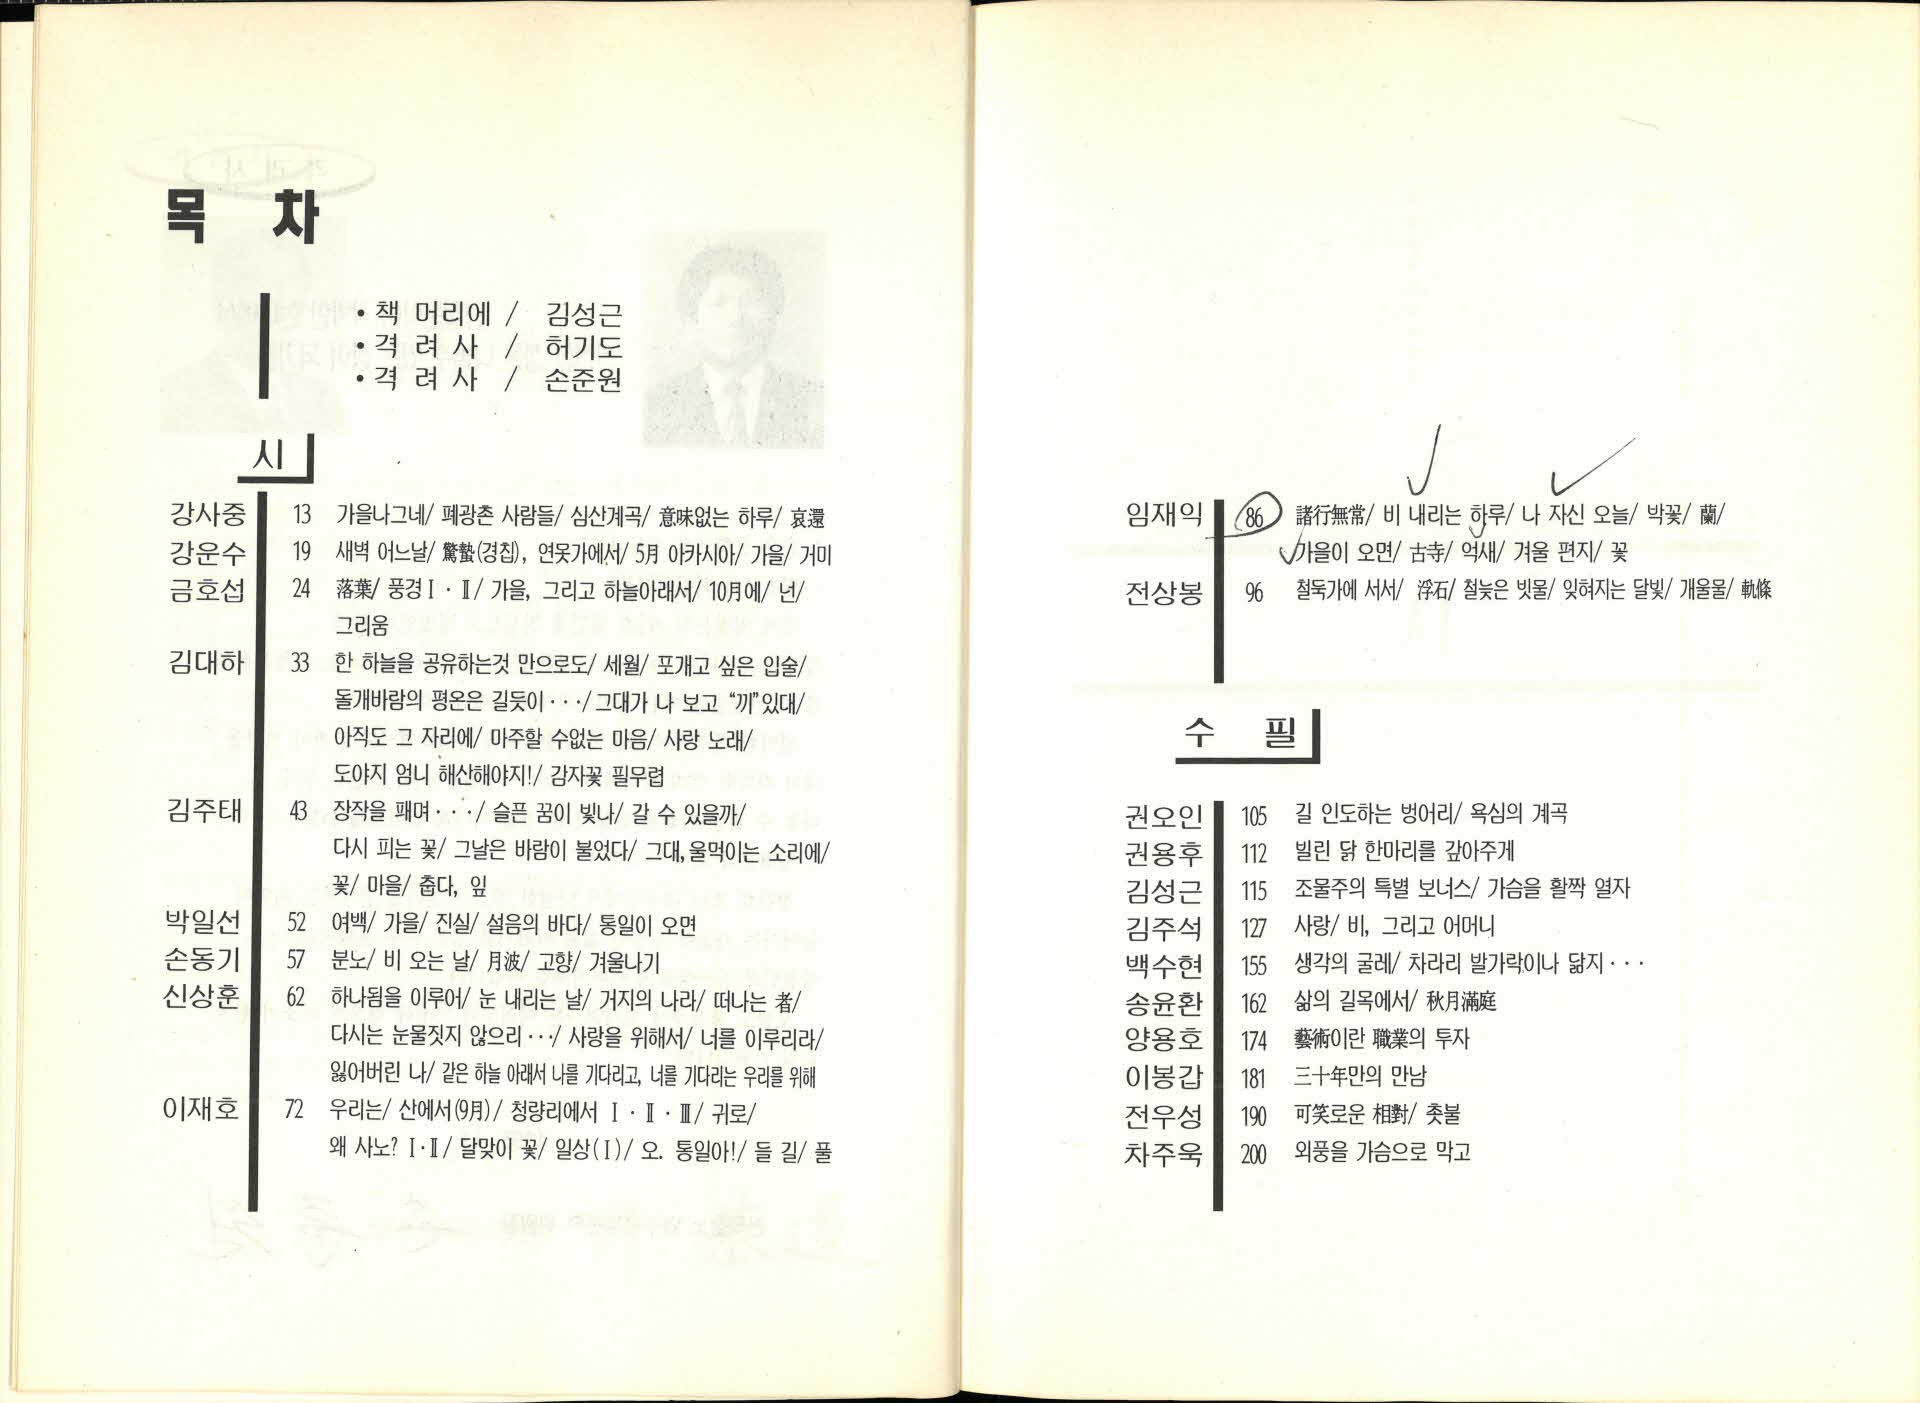 목 차
• 책 머리에 / 김성근
• 격 려 사 / 허기도
• 격 려 사 / 손준원
시
강사중 13 가을나그네/ 폐광촌 사람들/ 심산계곡/ 意味없는 하루/ 哀還
강운수 19 새벽 어느날/ 驚蟄(경칩), 연못가에서/ 5月 아카시아/ 가을/ 거미
금호섭 24 落葉/ 풍경Ⅰ · Ⅱ/ 가을, 그리고 하늘아래서/ 10月에/ 넌/
그리움
김대하 33 한 하늘을 공유하는것 만으로도/ 세월/ 포개고 싶은 입술/
돌개바람의 평온은 길듯이···/ 그대가 나 보고 “끼”있대/
아직도 그 자리에/ 마주할 수없는 마음/ 사랑 노래/
도야지 엄니 해산해야지!/ 감자꽃 필무렵
김주태 43 장작을 패며···/ 슬픈 꿈이 빛나/ 갈 수 있을까/
다시 피는 꽃/ 그날은 바람이 불었다/ 그대,울먹이는 소리에/
꽃/ 마을/ 춥다, 잎
박일선 52 여백/ 가을/ 진실/ 설음의 바다/ 통일이 오면
손동기 57 분노/ 비 오는 날/ 月波/ 고향/ 겨울나기
신상훈 62 하나됨을 이루어/ 눈 내리는 날/ 거지의 나라/ 떠나는 者/
다시는 눈물짓지 않으리···/ 사랑을 위해서/ 너를 이루리라/
잃어버린 나/ 같은 하늘 아래서 나를 기다리고, 너를 기다리는 우리를 위해
이재호 72 우리는/ 산에서(9月)/ 청량리에서 Ⅰ · Ⅱ · Ⅲ/ 귀로/
왜 사노? Ⅰ·Ⅱ/ 달맞이 꽃/ 일상(Ⅰ)/ 오. 통일아!/ 들 길/ 풀
임재익 86 諸行無常/ 비 내리는 하루/ 나 자신 오늘/ 박꽃/ 蘭/
가을이 오면/ 古寺/ 억새/ 겨울 편지/ 꽃
전상봉 96 철둑가에 서서/ 浮石/ 철늦은 빗물/ 잊혀지는 달빛/ 개울물/ 軌條
수 필
권오인 105 길 인도하는 벙어리/ 욕심의 계곡
권용후 112 빌린 닭 한마리를 갚아주게
김성근 115 조물주의 특별 보너스/ 가슴을 활짝 열자
김주석 127 사랑/ 비, 그리고 어머니
백수현 155 생각의 굴레/ 차라리 발가락이나 닮지···
송윤환 162 삶의 길목에서/ 秋月滿庭
양용호 174 藝術이란 職業의 투자
이봉갑 181 三十年만의 만남
전우성 190 可笑로운 相對/ 촛불
차주욱 200 외풍을 가슴으로 막고